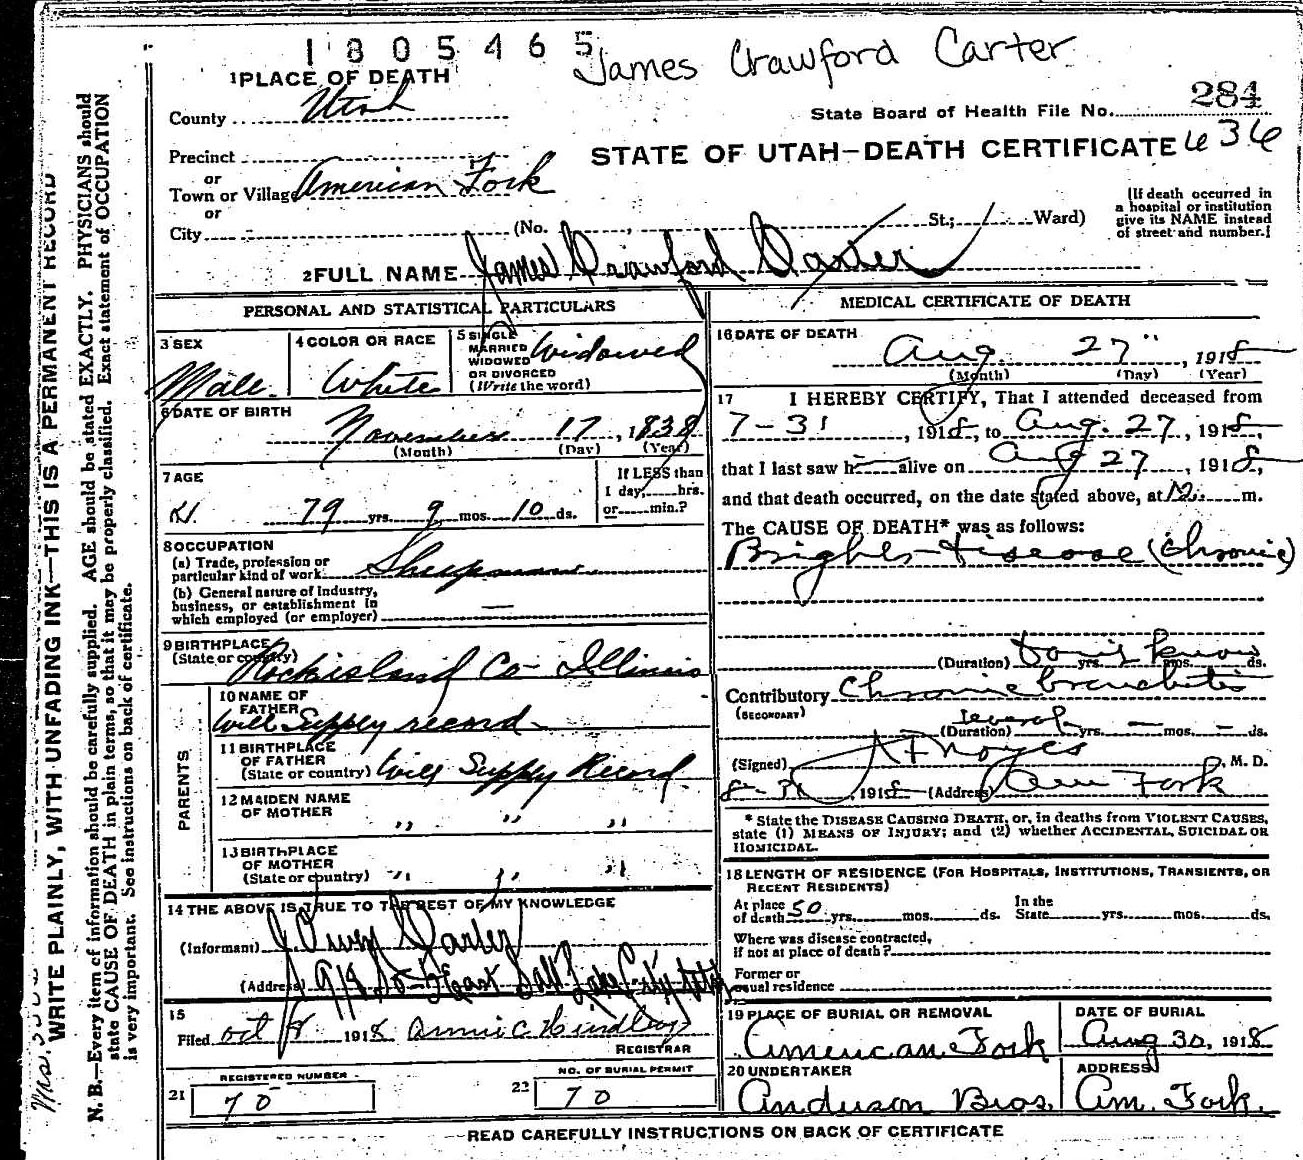 1805465
James Crawford Carter
1 PLACE OF DEATH
County Utah
State Board of Health File No. 284
STATE OF UTAH—DEATH CERTIFICATE 436
Precinct
or
Town or Village American Fork
or
City (No. St.; Ward)
(If death occurred in
a hospital or institution
give its NAME instead
of street and number.)
2 FULL NAME James Crawford Carter
PERSONAL AND STATISTICAL PARTICULARS
3 SEX
Male
4 COLOR OR RACE
White
5 SINGLE
MARRIED
WIDOWED
OR DIVORCED
(Write the word)
Widowed
6 DATE OF BIRTH
November 17, 1838
(Month) (Day) (Year)
7 AGE
79 yrs. 9 mos. 10 ds.
If LESS than
1 day, hrs.
or min.?
8 OCCUPATION
(a) Trade, profession or
particular kind of work. Sheepman
(b) General nature of Industry,
business, or establishment in
which employed (or employer) —
9 BIRTHPLACE
(State or country) Rockisland Co- Illinois
PARENTS
10 NAME OF
FATHER
Will Supply record
11 BIRTHPLACE
OF FATHER
(State or country) Will Supply Record
12 MAIDEN NAME
OF MOTHER
" " "
13 BIRTHPLACE
OF MOTHER
(State or country) " " "
14 THE ABOVE IS TRUE TO THE BEST OF MY KNOWLEDGE
(Informant) J Owen Carter
(Address) 918 So East Salt Lake City Utah
15
Filed Oct 8 1918 Annie C. Hindley
REGISTRAR
REGISTERED NUMBER
21 70
NO. OF BURIAL PERMIT
22 70
MEDICAL CERTIFICATE OF DEATH
16 DATE OF DEATH
Aug 27", 1918
(Month) (Day) (Year)
17 I HEREBY CERTIFY, That I attended deceased from
7-31, 1918, to Aug. 27, 1918,
that I last saw h alive on Aug 27, 1918,
and that death occurred, on the date stated above, at 12 m.
The CAUSE OF DEATH* was as follows:
Brights disease (chronic)
(Duration) don't know yrs. mos. ds.
Contributory Chronic bronchitis
(SECONDARY)
(Duration) several yrs. — mos. — ds.
(Signed) Noyes, M. D.
8-31, 1918 (Address) Am Fork
* State the DISEASE CAUSING DEATH, or, in deaths from VIOLENT CAUSES,
state (1) MEANS OF INJURY; and (2) whether ACCIDENTAL, SUICIDAL OR
HOMICIDAL.
18 LENGTH OF RESIDENCE (FOR HOSPITALS, INSTITUTIONS, TRANSIENTS, OR
RECENT RESIDENTS)
At place
of death 50 yrs. mos. ds.
In the
State yrs. mos. ds.
Where was disease contracted,
if not at place of death?
Former or
usual residence
19 PLACE OF BURIAL OR REMOVAL
American Fork
DATE OF BURIAL
Aug 30, 1918
20 UNDERTAKER
Anderson Bros.
ADDRESS
Am. Fork.
READ CAREFULLY INSTRUCTIONS ON BACK OF CERTIFICATE
WRITE PLAINLY, WITH UNFADING INK—THIS IS A PERMANENT RECORD
N. B.—Every item of information should be carefully supplied. AGE should be stated EXACTLY. PHYSICIANS should
state CAUSE OF DEATH in plain terms, so that it may be properly classified. Exact statement of OCCUPATION
is very important. See instructions on back of certificate.